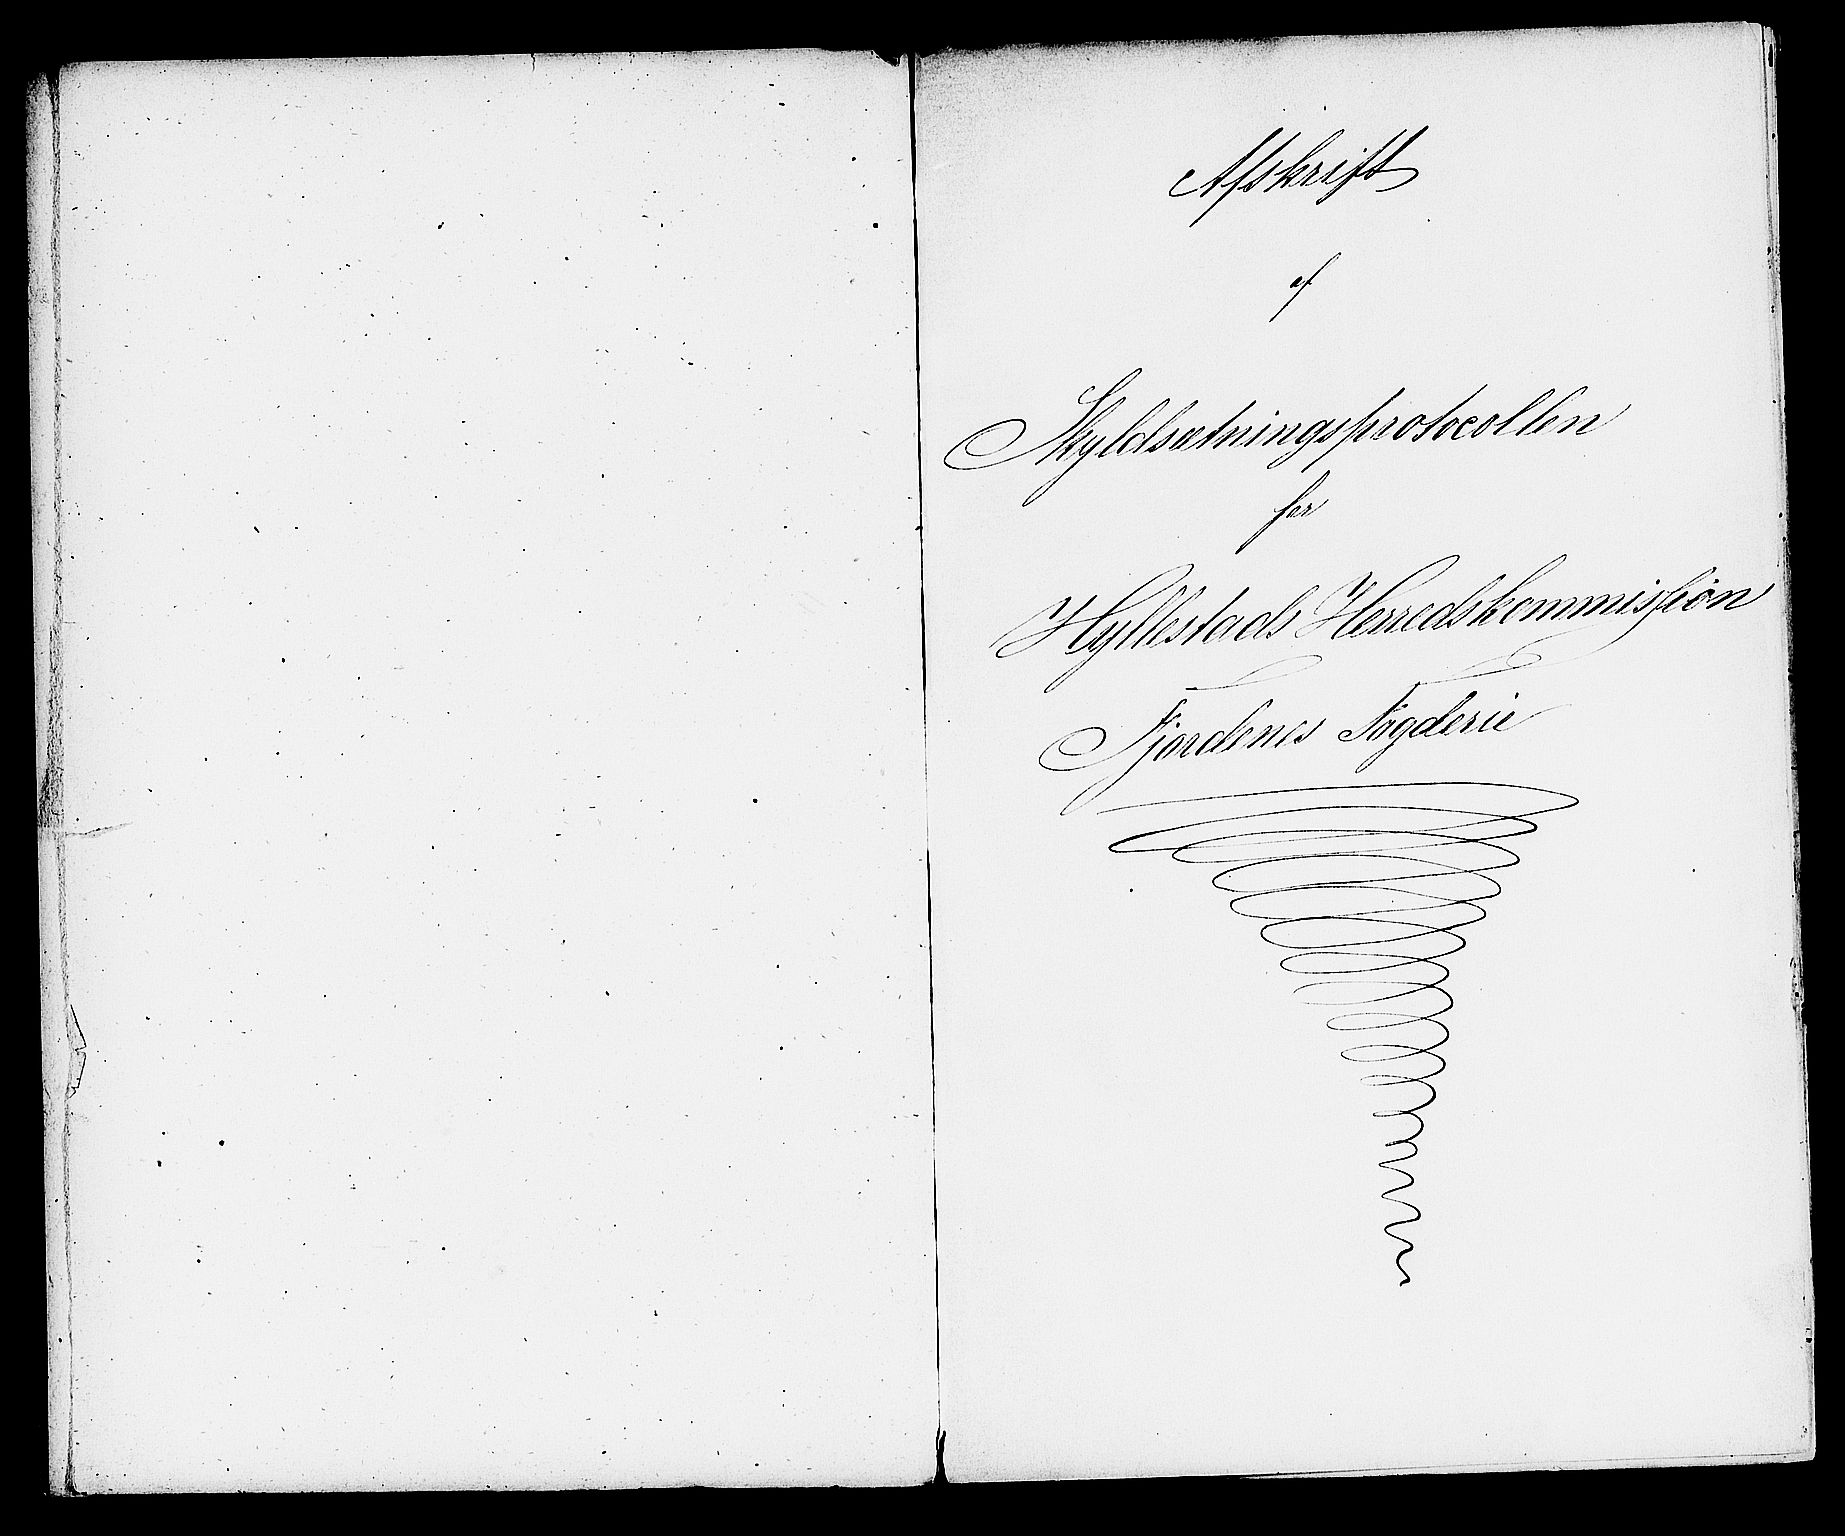 Afskrift
af
Skyldsætningsprotocollen
for
Hyllestads Herredskommisſion
Fjordenes Fogderie